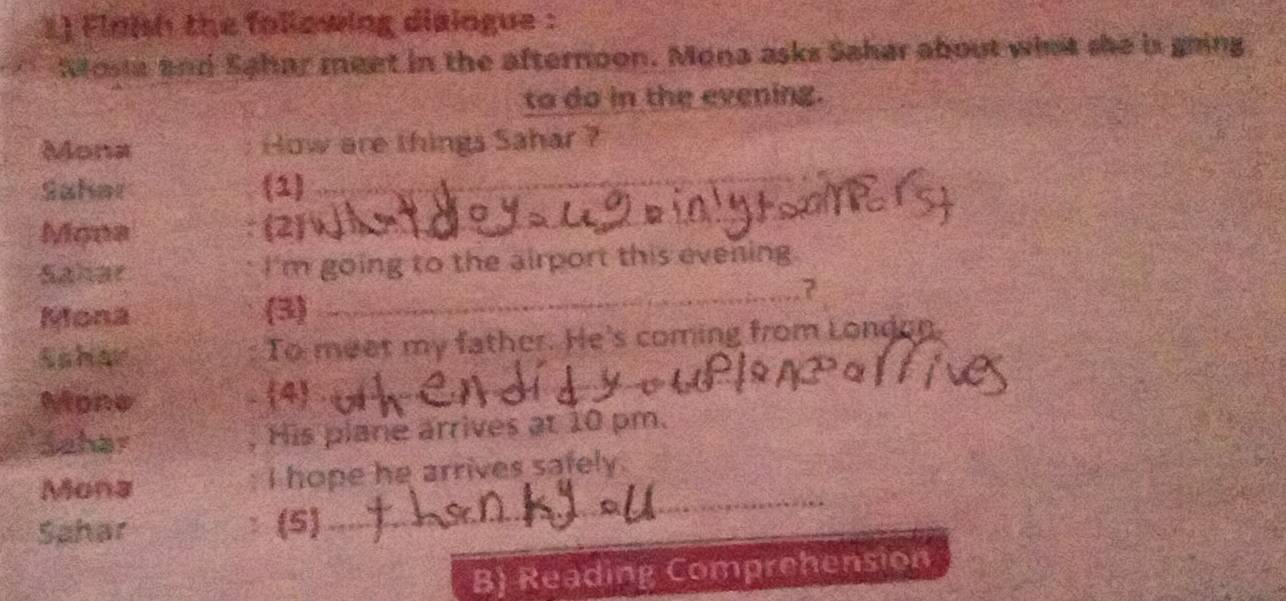 1) Finish the following dialogue :
Mona and Sahar meet in the afternoon. Mona asks Sahar about what she is going
to do in the evening.
Mona : How are things Sahar ?
Sahar : (1) ........................
Mona : (2) What do you
Sahar : I'm going to the airport this evening.
Mona : (3) ........................?
Sahar : To meet my father. He's coming from London.
Mona : (4) when did you arrives
Sahar : His plane arrives at 10 pm.
Mona : I hope he arrives safely.
Sahar : (5) thank you
B) Reading Comprehension